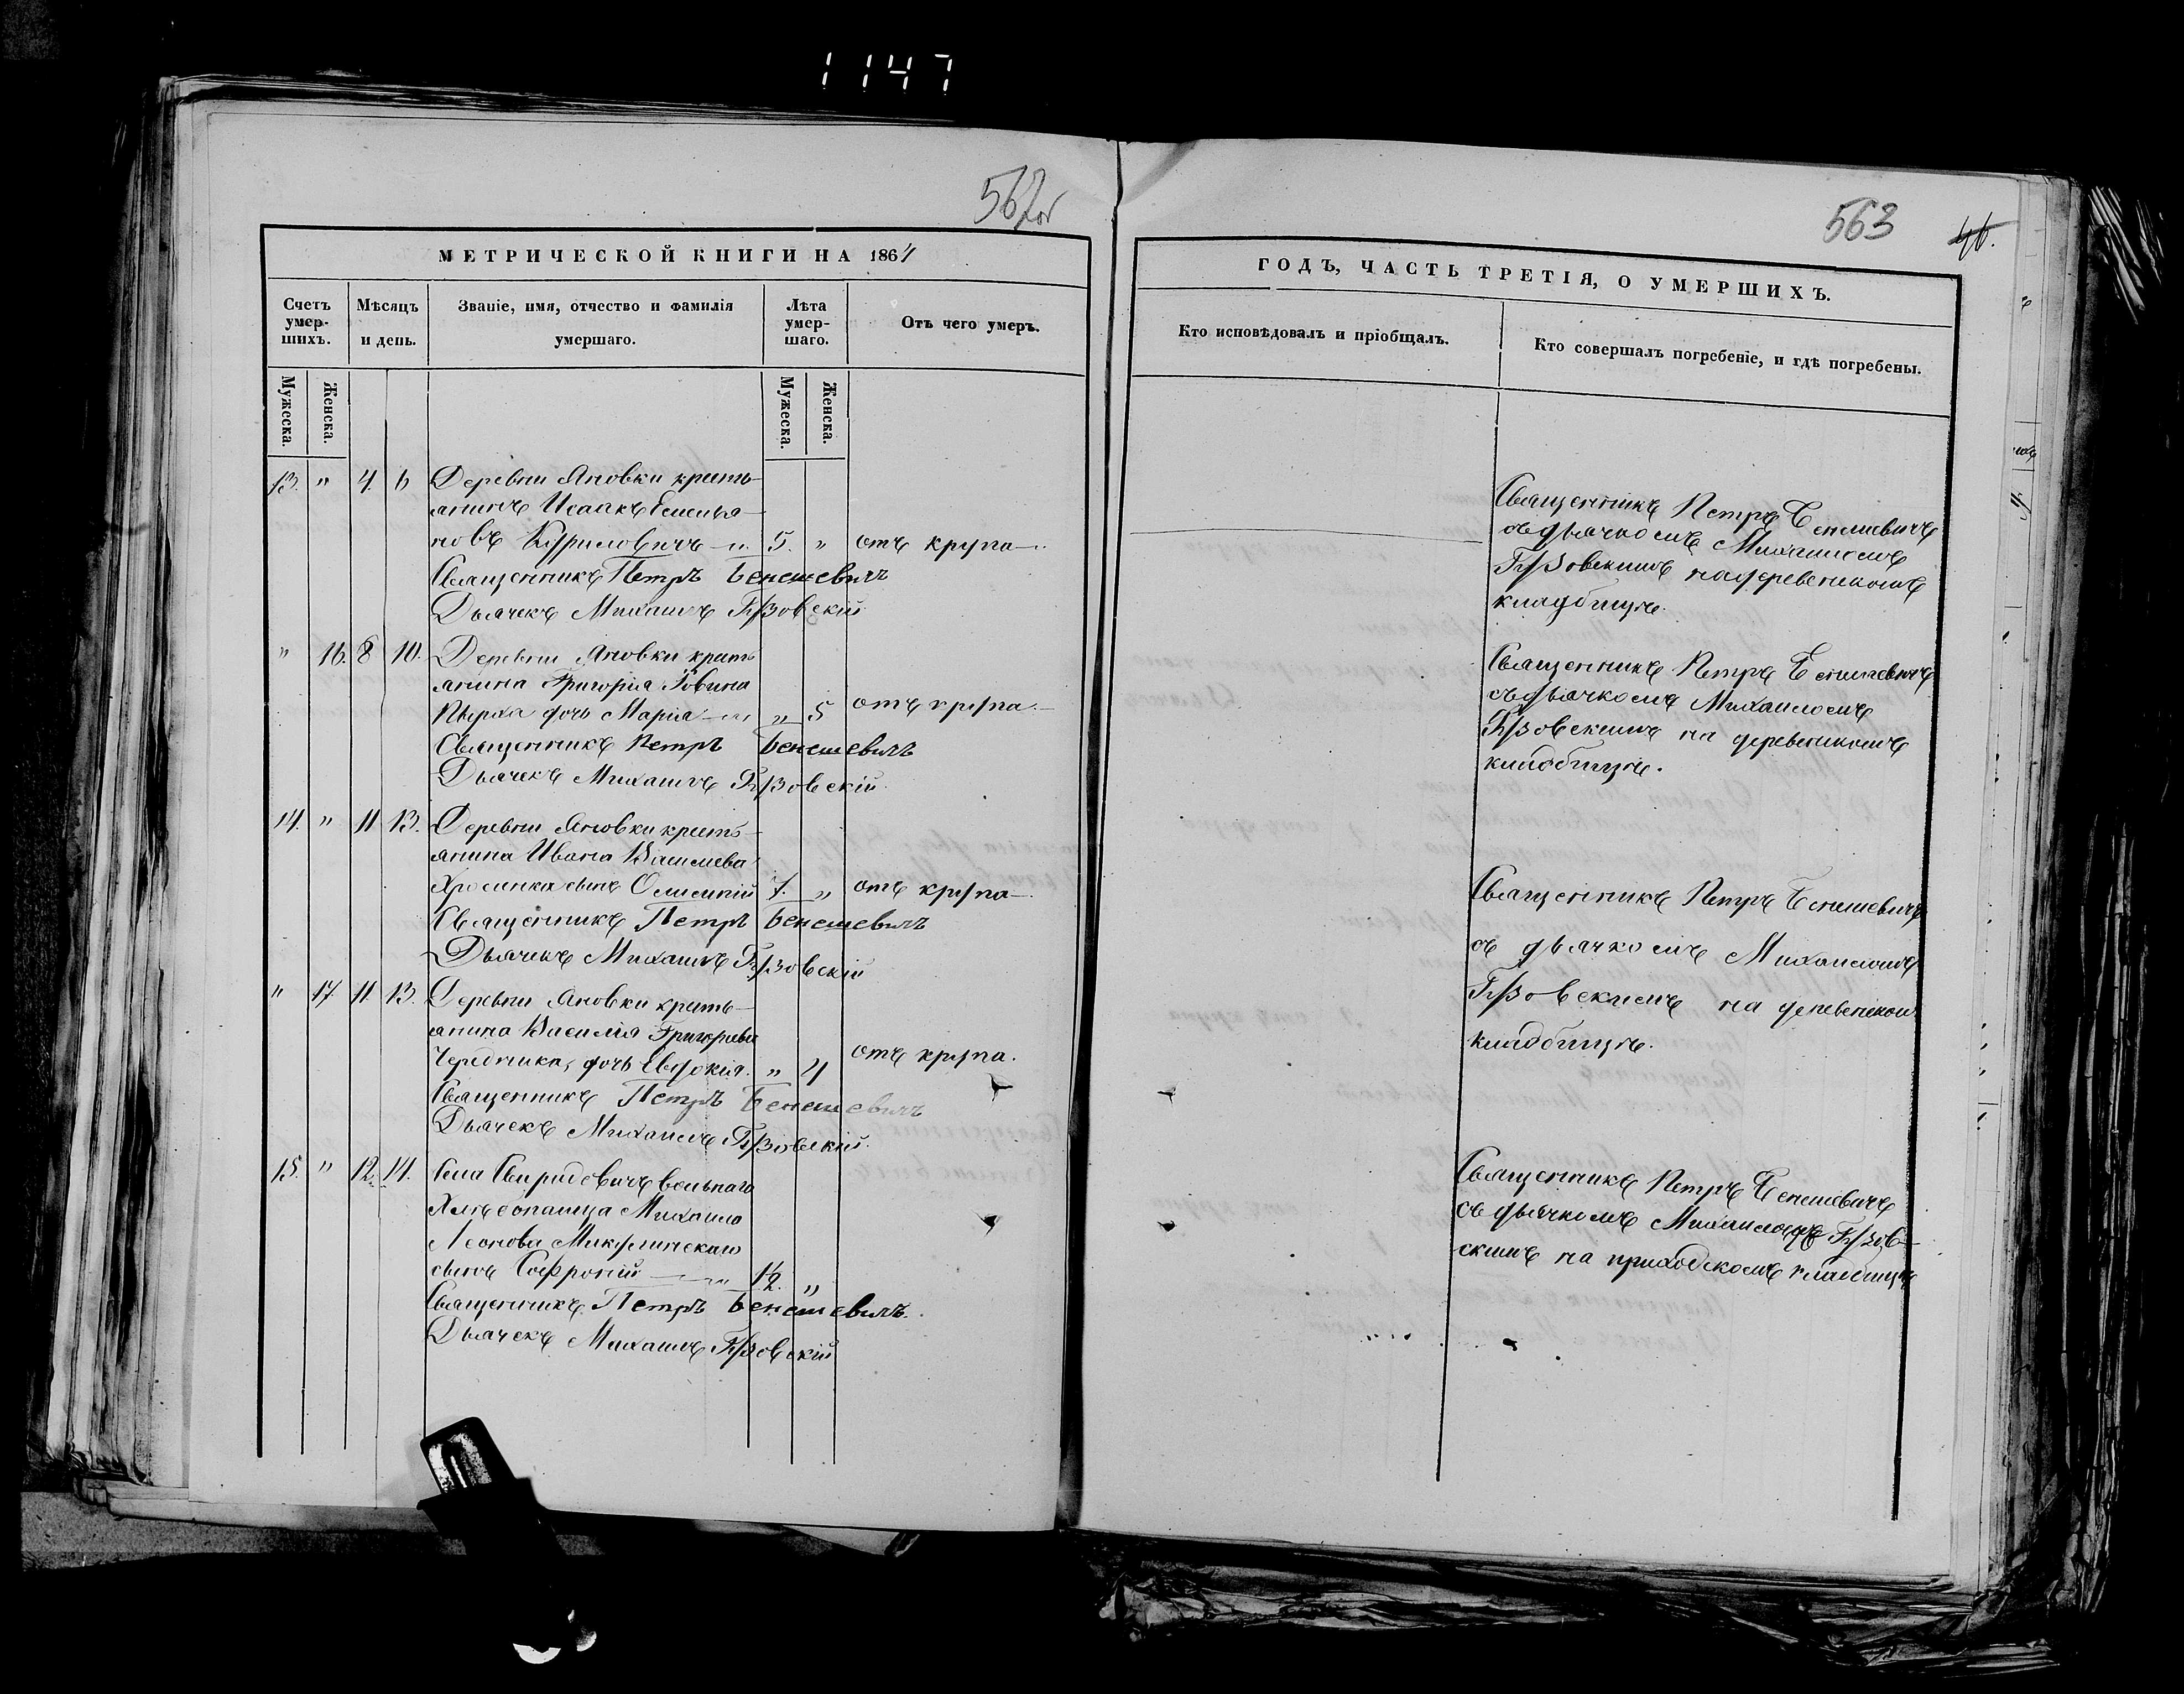 1147
562об
МЕТРИЧЕСКОЙ КНИГИ НА 1864
Счетъ умер-шихъ.
Мѣсяцъ и день.
Званіе, имя, отчество и фамилія умершаго.
Лѣта умер-шаго.
Отъ чего умеръ.
Мужеска. Женска.
Мужеска. Женска.
13. " 4. 6 Деревни Яновки кресть-
янинъ Исаакъ Емелья-
новъ Куриловичъ 5. " отъ крупа
Священникъ Петръ Бенешевичъ
Дьячекъ Михаилъ Гузовскій
" 16. 8 10. Деревни Яновки кресть
янина Григорія
дочь Марія " 5 отъ крупа
Священникъ Петръ Бенешевичъ
Дьячекъ Михаилъ Гузовскій
14. " 11 13. Деревни Яновки кресть-
янина Ивана Василиева
сынъ 7. " отъ крупа
Священникъ Петръ Бенешевичъ
Дьячекъ Михаилъ Гузовскій
" 17 11. 13. Деревни Яновки кресть-
янина Василія Григорьева
Чередника, дочь Евдокія. " 4 отъ крупа.
Священникъ Петръ Бенешевичъ
Дьячекъ Михаилъ Гузовскій.
15. " 12. 14. Села Свиридовичъ вольнаго
Хлѣбопашца Михаила
Леонова Микулинскаго
сынъ Софроній 1/2. "
Священникъ Петръ Бенешевичъ.
Дьячекъ Михаилъ Гузовскій
563
46.
ГОДЪ, ЧАСТЬ ТРЕТІЯ, О УМЕРШИХЪ.
Кто исповѣдовалъ и пріобщалъ.
Кто совершалъ погребеніе, и гдѣ погребены.
Священникъ Петръ Бенешевичъ
съ дьячкомъ Михаиломъ
Гузовскимъ на деревенскомъ
кладбищѣ.
Священникъ Петръ Бенешевичъ
съ дьячкомъ Михаиломъ
Гузовскимъ на деревенскомъ
кладбищѣ.
Священникъ Петръ Бенешевичъ
съ дьячкомъ Михаиломъ
Гузовскимъ на деревенском
кладбищѣ.
Священникъ Петръ Бенешевичъ
съ дьячкомъ Михаиломъ Гузов-
скимъ на приходскомъ кладбищѣ